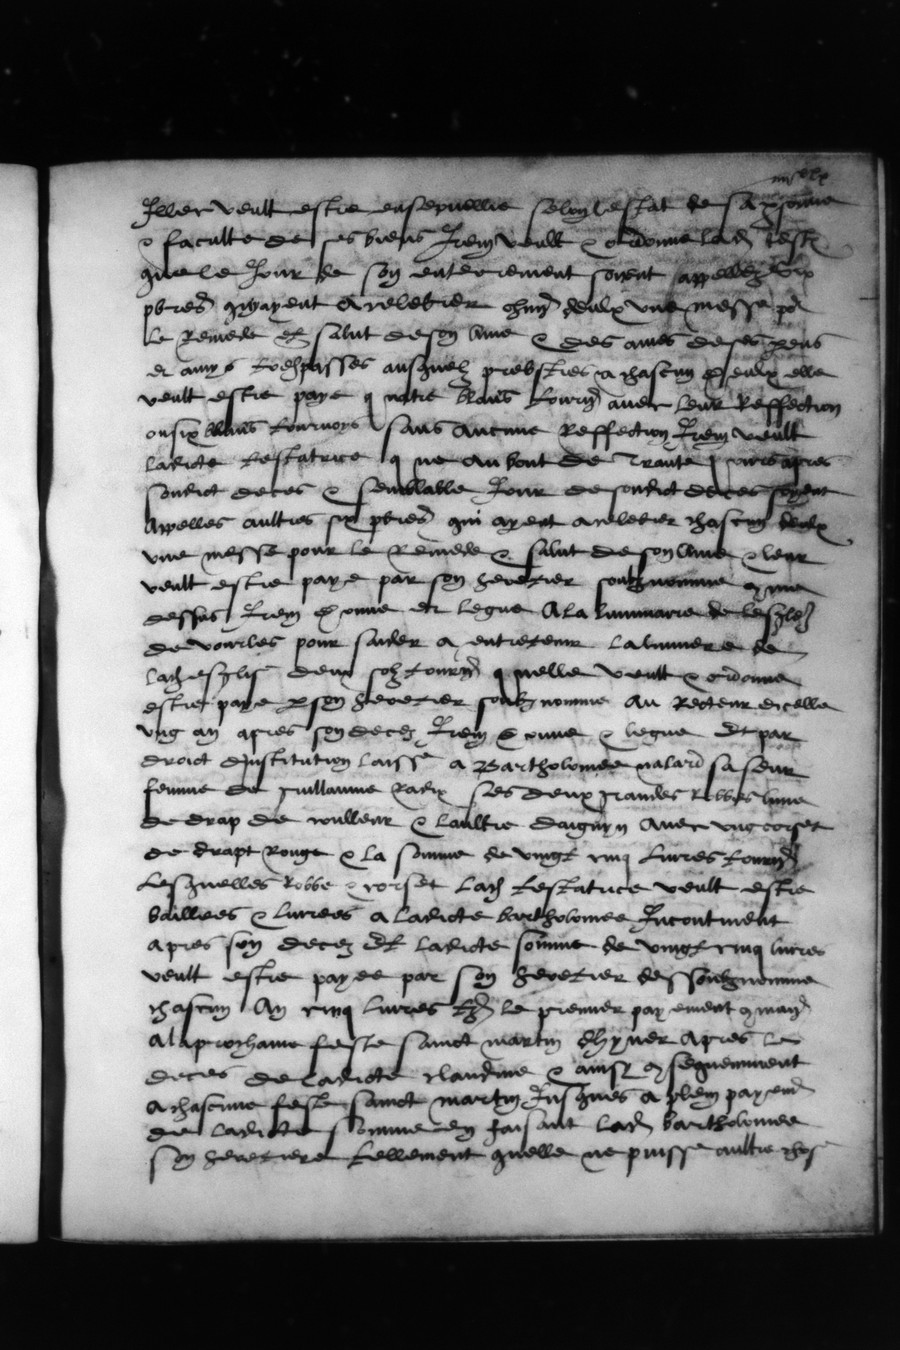 Illec veult estre ensepvellie selon lestat de sa psonne
& faculte de ses biens Item veult & ordonne lad test
que le Jour de son enterrement soient appellez six
pbres quayent a celebrer chun deulx une messe po
le Remede et salut de son ame & des ames de ses pens
et amys tresspasses ausquelz prebstres a chascun deulx elle
veult estre paye quatre blans tourn avec leur Reffection
ou six blans tournoys sans aucune Reffection Item veult
ladicte testatrice que au bout de Trante Jours apres
sondict deces & semblable Jour de sondict deces soyent
Appelles aultres six pbres qui ayent a celebrer chascun deulx
une messe pour le Remede & salut de son ame & leur
veult estre paye par son heretier soubznomme comme
dessus Item donne et legue A la luminaire de leszglez
de vourles pour saider a entretenir la lumiere de
lad eszglise deux solz tourn quelle veult & ordonne
estre paye p son heretier soubznomme Au Recteur dicelle
ung an apres son deces Item donne & legue Et par
droict dinstitution laisse a Bartholomee nalard sa seur
femme de guillaume ses deux grandes Robbes lune
de drap de coulleur & laultre avec ung corset
de drapt Rouge & la somme de vingt cinq livres tourn
Lesquelles Robbe & corset lad testatrice veult estre
baillees & livrees a ladicte bartholomee Incontinent
apres son decez Et ladicte somme de vingt cinq livres
veult estre payee par son heretier dessoubznomme
chascun An cinq livres tz le premier payement comman
A la prochaine feste sainct martin dhyver apres le
deces de ladicte claudine & ainsy consequemment
a chascune feste sainct martin Jusques a plein payemt
de ladicte somme en faisant lad bartholomee
son heretiere tellement quelle ne puisse aultre chose